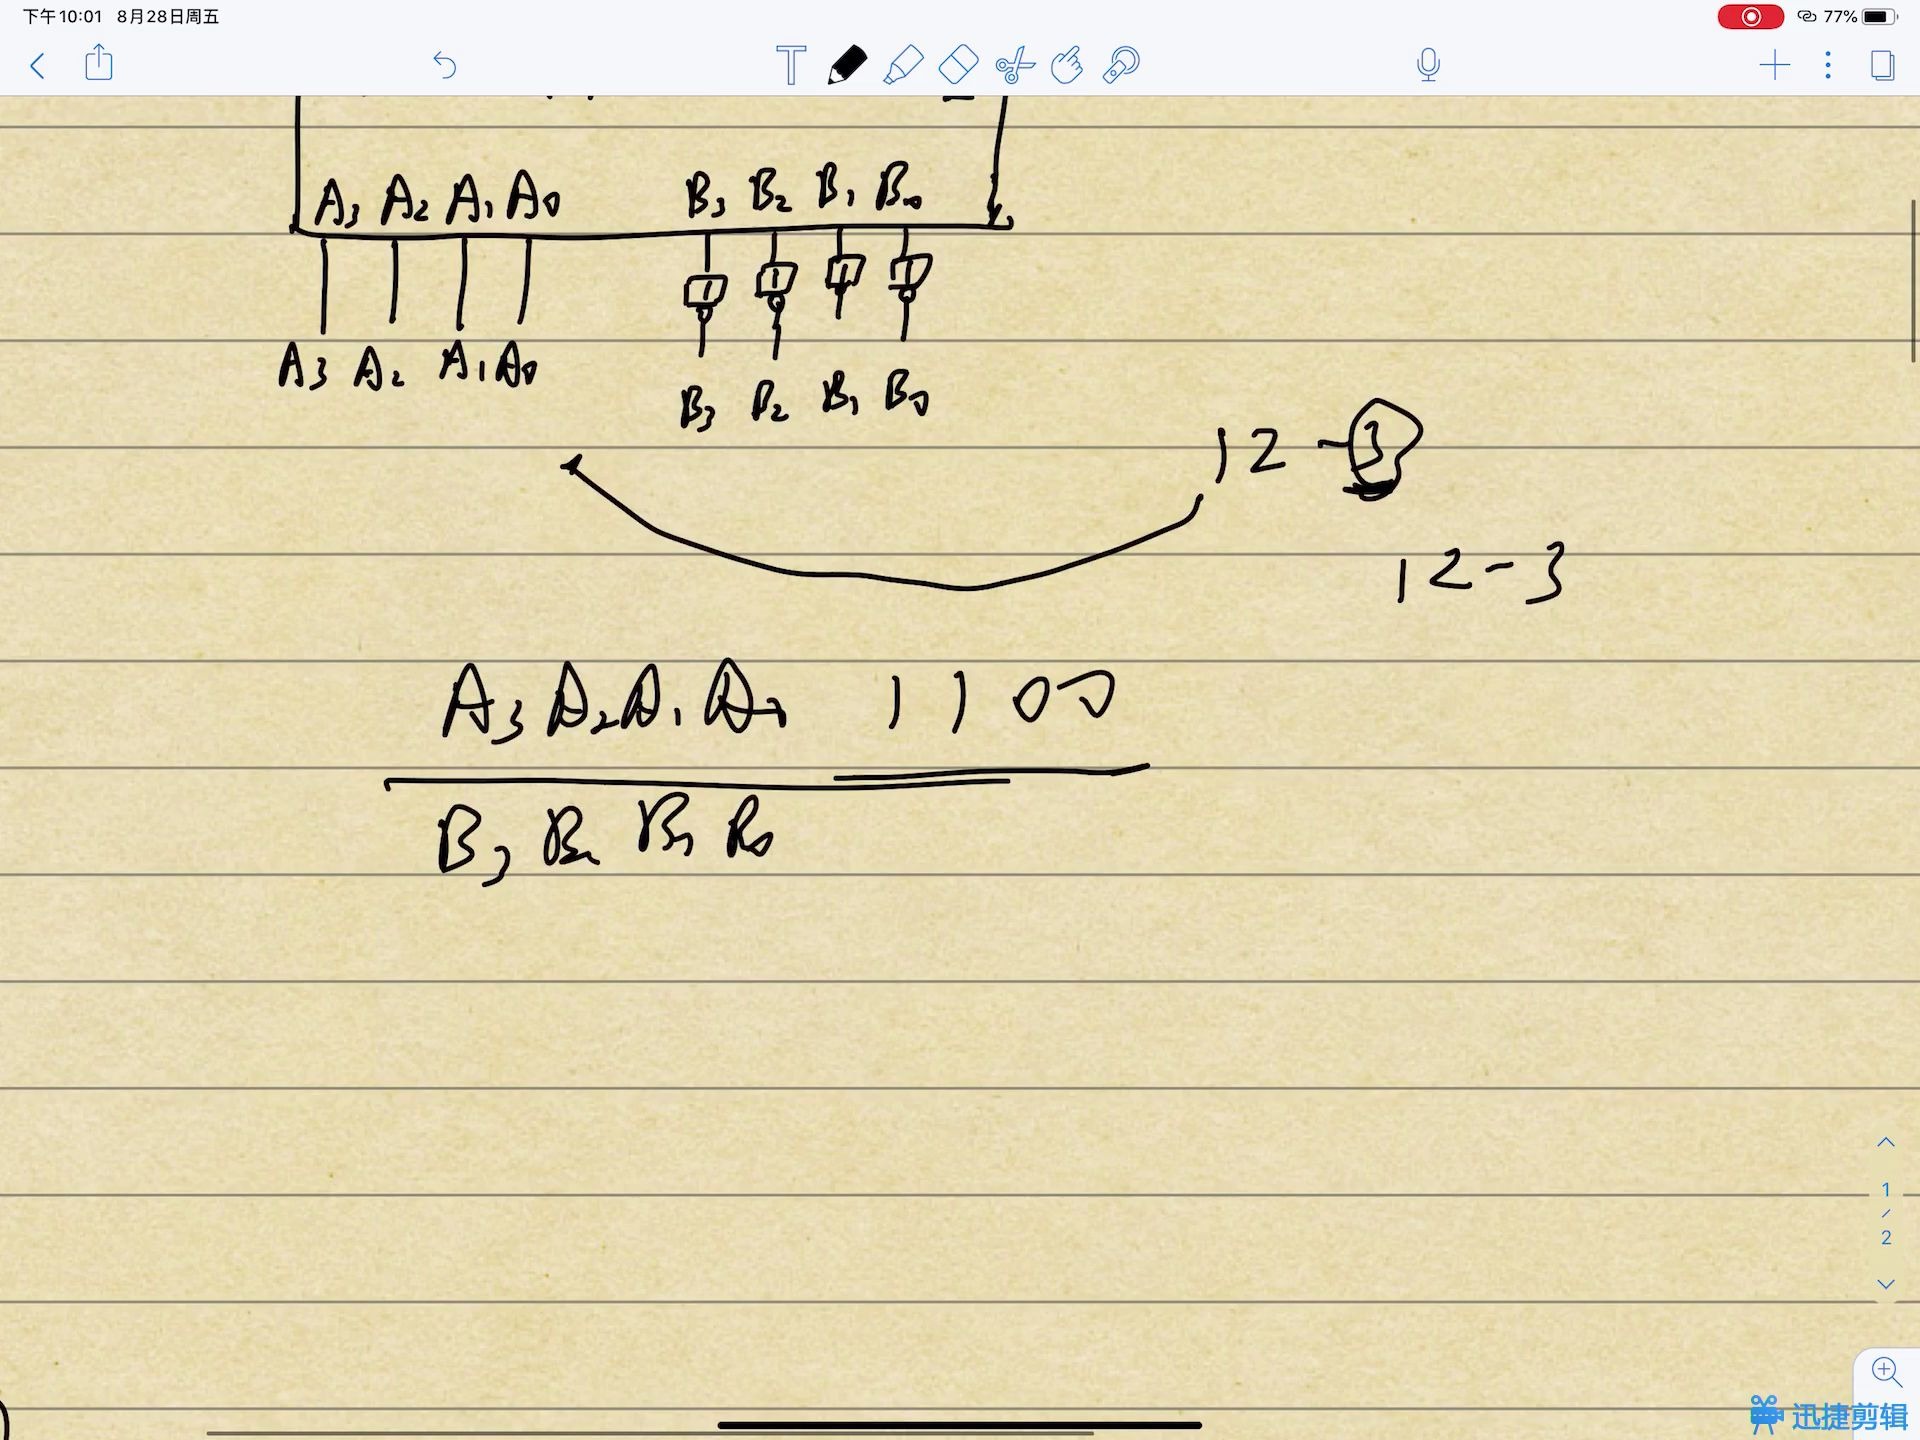 下午10:01 8月28日周五
77%
A3 A2 A1 A0 B3 B2 B1 B0
1 1 1 1
A3 A2 A1 A0
B3 B2 B1 B0
12-3
12-3
A3 A2 A1 A0 1100
B3 B2 B1 B0
1
/
2
迅捷剪辑